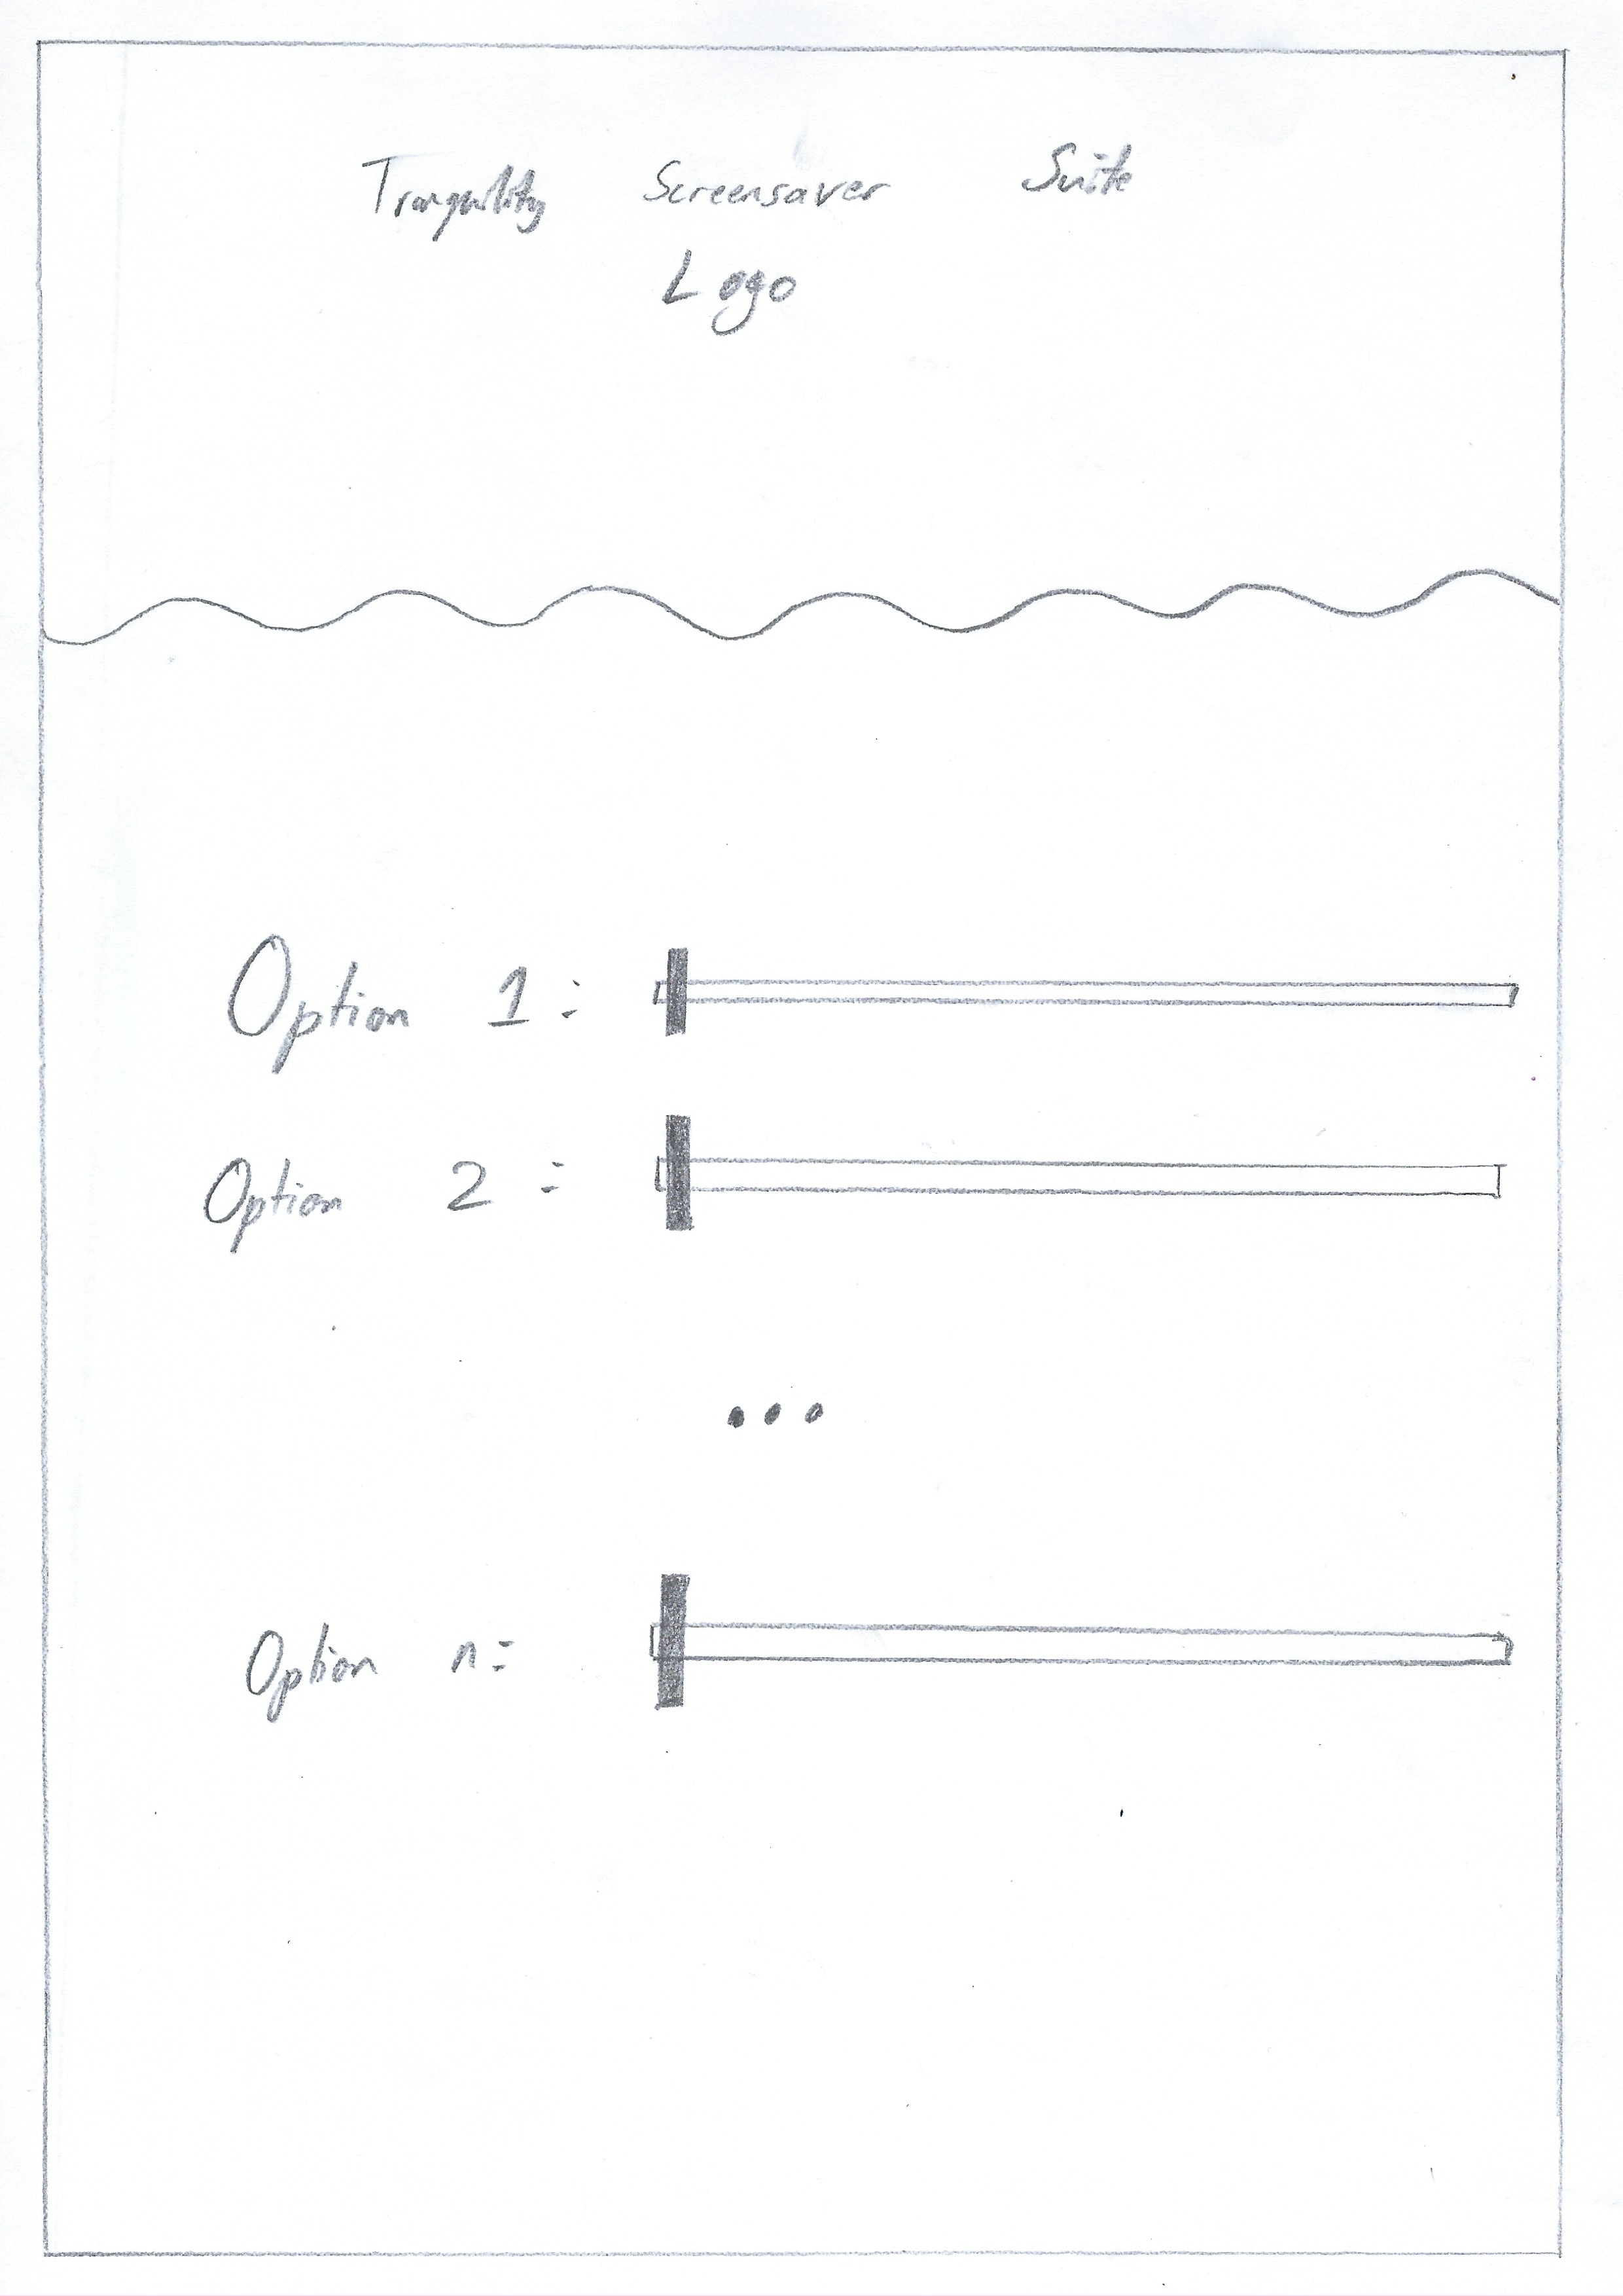 Tranquility Screensaver Suite
Logo
Option 1:
Option 2:
...
Option n: